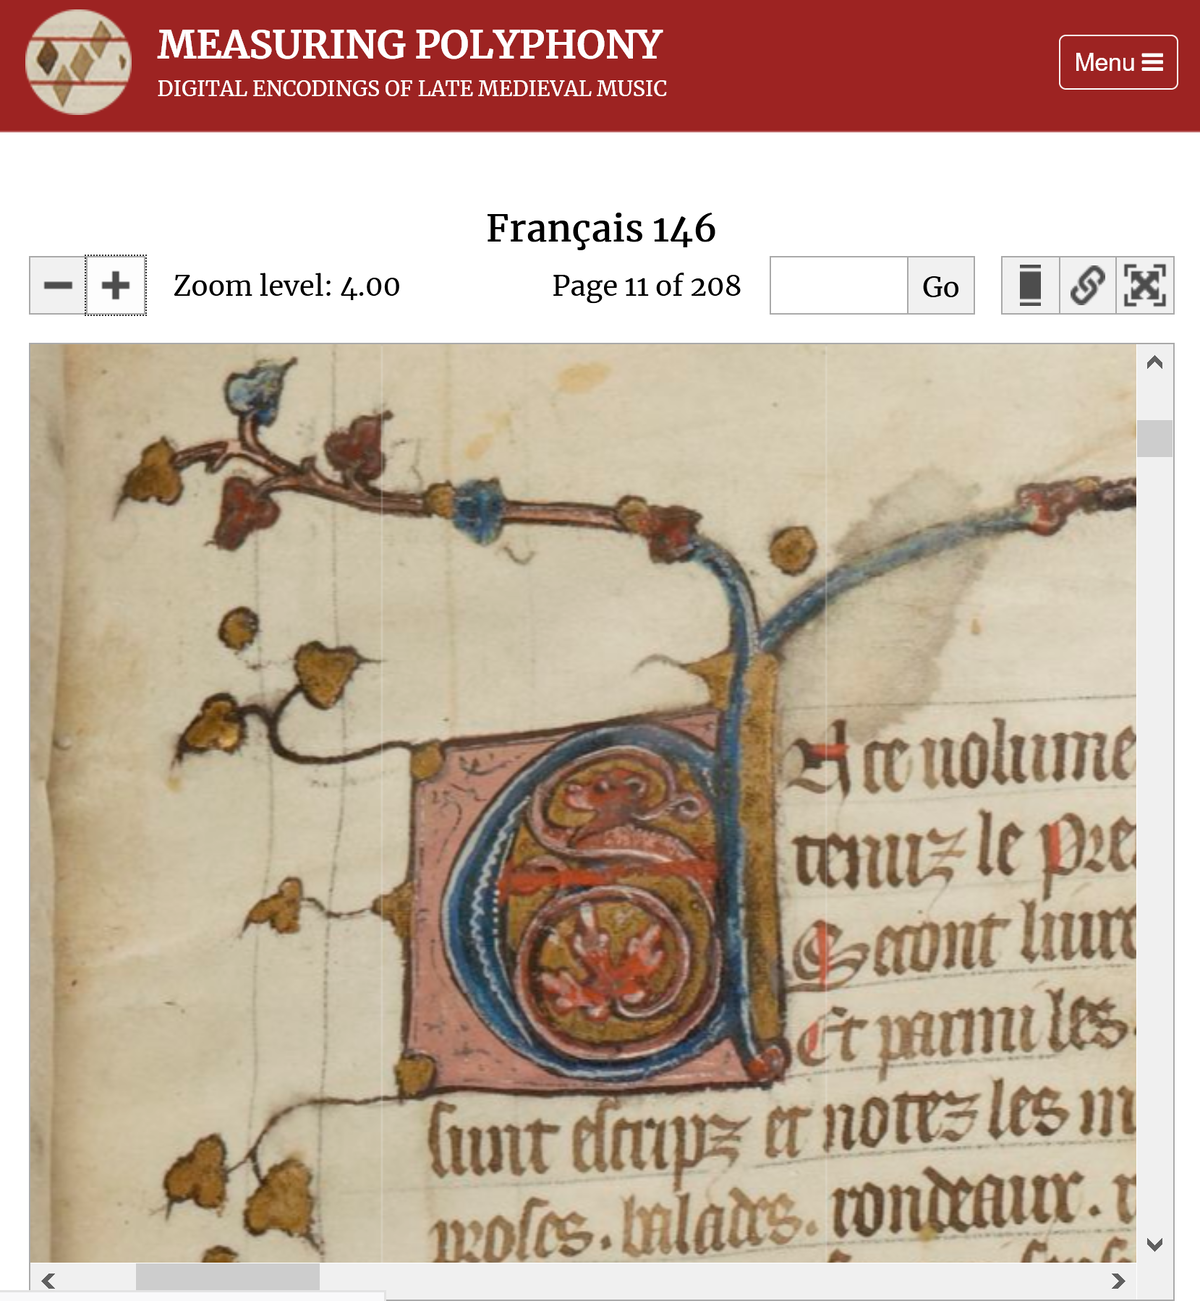 MEASURING POLYPHONY
DIGITAL ENCODINGS OF LATE MEDIEVAL MUSIC
Menu
Français 146
Zoom level: 4.00
Page 11 of 208
Go
ce uolume
tenuz le Pre
Seront liure
Et parmi les
sunt escripz et notez les m
proses. balades. rondeaux. r